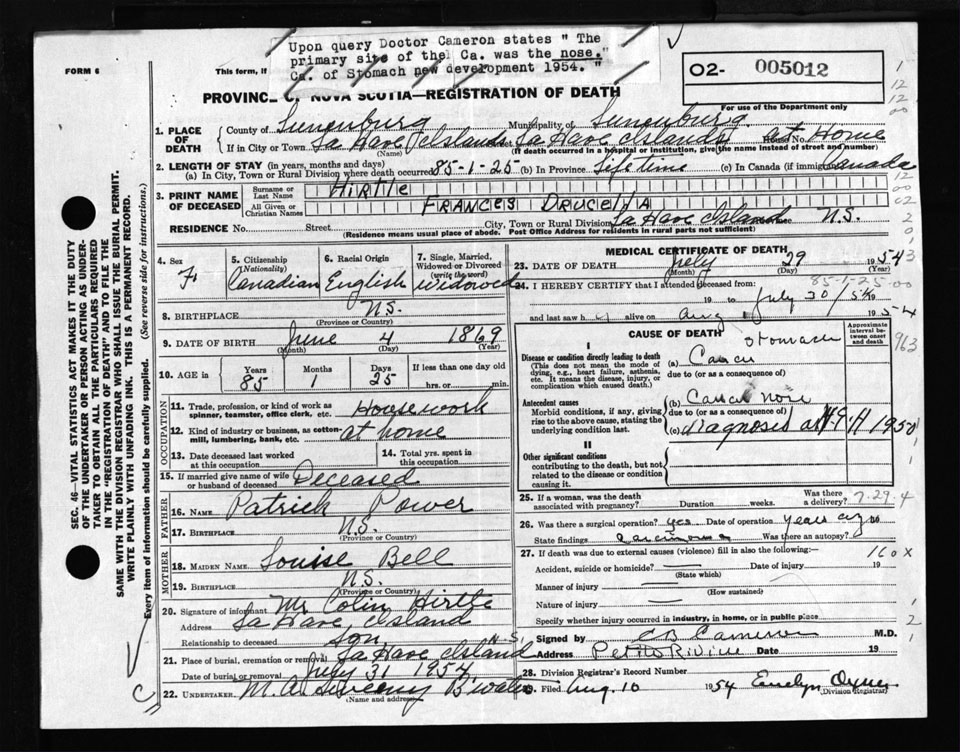 Upon query Doctor Cameron states " The
primary site of the Ca. was the nose."
Ca. of Stomach new development 1954. "
FORM 6
This form, if
O2- 005012
For use of the Department only
PROVINCE OF NOVA SCOTIA—REGISTRATION OF DEATH
1. PLACE OF DEATH
County of Lunenburg Municipality of Lunenburg
If in City or Town La Have Islands Street La Have Islands House No. at Home
(Name) (If death occurred in a hospital or institution, give the name instead of street and number)
2. LENGTH OF STAY (in years, months and days)
(a) In City, Town or Rural Division where death occurred 85-1-25 (b) In Province Life time (c) In Canada (if immigrant) Canada
3. PRINT NAME OF DECEASED
Surname or Last Name HIRTLE
All Given or Christian Names FRANCES DRUCELLA
RESIDENCE No. Street City, Town or Rural Division La Have Islands N.S.
(Residence means usual place of abode. Post Office Address for residents in rural parts not sufficient)
4. Sex F
5. Citizenship (Nationality) Canadian
6. Racial Origin English
7. Single, Married, Widowed or Divorced (write the word) Widowed
8. BIRTHPLACE N.S.
(Province or Country)
9. DATE OF BIRTH June 4 1869
(Month) (Day) (Year)
10. AGE in Years 85 Months 1 Days 25 If less than one day old
hrs. or min.
OCCUPATION
11. Trade, profession, or kind of work as spinner, teamster, office clerk, etc. Housework
12. Kind of industry or business, as cotton-mill, lumbering, bank, etc. at home
13. Date deceased last worked at this occupation
14. Total yrs. spent in this occupation
15. If married give name of wife or husband of deceased Deceased
FATHER
16. NAME Patrick Power
17. BIRTHPLACE N.S.
(Province or Country)
MOTHER
18. MAIDEN NAME Louise Bell
19. BIRTHPLACE N.S.
(Province or Country)
20. Signature of informant Mr Colin Hirtle
Address La Have Island
Relationship to deceased son N-S.
21. Place of burial, cremation or removal La Have Island
Date of burial or removal July 31 1954
22. UNDERTAKER M. A. Sweeny B'water
(Name and address)
MEDICAL CERTIFICATE OF DEATH
23. DATE OF DEATH July 29 1954
(Month) (Day) (Year)
85-1-25-00
24. I HEREBY CERTIFY that I attended deceased from
19 to July 30/54 19
and last saw h alive on Aug 1 1954
CAUSE OF DEATH
Approximate interval between onset and death
I
Disease or condition directly leading to death
(This does not mean the mode of dying, e.g., heart failure, asthenia, etc. It means the disease, injury, or complication which caused death.)
(a) Cancer stomach
due to (or as a consequence of)
Antecedent causes
Morbid conditions, if any, giving rise to the above cause, stating the underlying condition last.
(b) Cancer nose
due to (or as a consequence of)
(c) diagnosis at H.G.H 1950
II
Other significant conditions
contributing to the death, but not related to the disease or condition causing it.
25. If a woman, was the death associated with pregnancy? Duration weeks. Was there a delivery? 7.29.4
26. Was there a surgical operation? yes Date of operation years ago
State findings carcinoma Was there an autopsy?
27. If death was due to external causes (violence) fill in also the following:— 160x
Accident, suicide or homicide? Date of injury 19
(State which)
Manner of injury
(How sustained)
Nature of injury
Specify whether injury occurred in industry, in home, or in public place
Signed by C B Cameron M.D.
Address Petite Riviere Date 19
28. Division Registrar's Record Number
Filed Aug. 10 1954 Evelyn Oxner
(Division Registrar)
SEC. 46—VITAL STATISTICS ACT MAKES IT THE DUTY
OF THE UNDERTAKER OR PERSON ACTING AS UNDER-
TAKER TO OBTAIN ALL THE PARTICULARS REQUIRED
IN THE "REGISTRATION OF DEATH" AND TO FILE THE
SAME WITH THE DIVISION REGISTRAR WHO SHALL ISSUE THE BURIAL PERMIT.
WRITE PLAINLY WITH UNFADING INK. THIS IS A PERMANENT RECORD.
Every item of information should be carefully supplied. (See reverse side for instructions.)